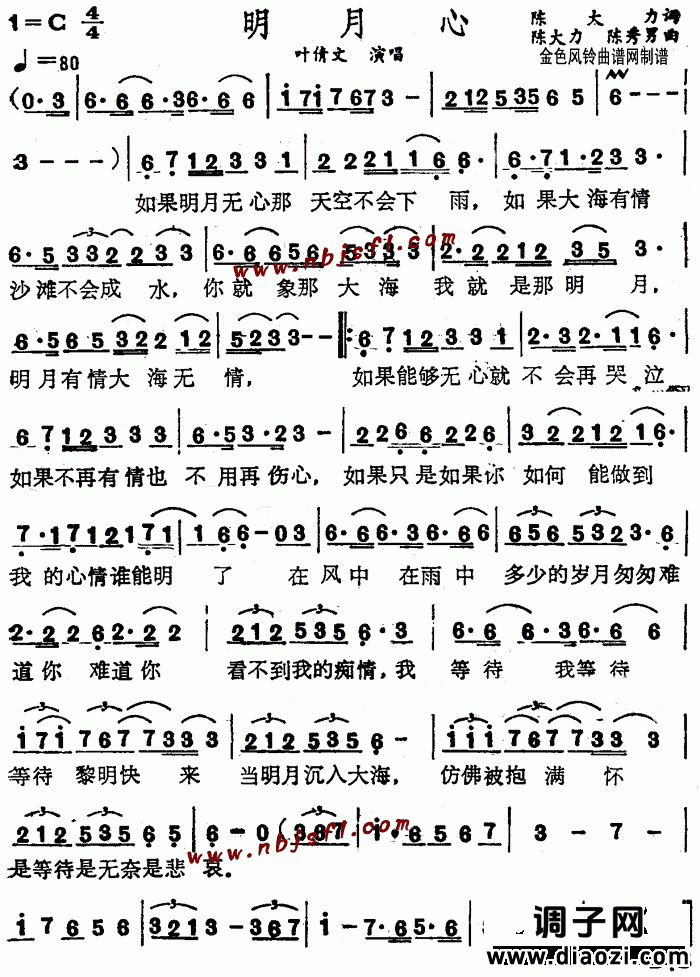 1=C 4/4 明月心 陈大力词
陈大力 陈秀男曲
♩=80 叶倩文 演唱 金色风铃曲谱网制谱
(0·3 | 6·6 6·3 6·6 6 | i 7 i 7 6 7 3 - | 2 1 2 5 3 5 6 5 | 6 - - -
3 - - - ) | 6 7 1 2 3 3 1 | 2 2 2 1 1 6 6· | 6·7 1·2 3 3·
如果明月无心那 天空不会下 雨，如果大海有情
6·5 3 3 2 2 3 3 | 6·6 6 5 6 5 3 3 3 | 2·2 2 1 2 3 5 3·
沙滩不会成 水，你就 象那大海 我就是那明 月，
www.nbjsfl.com
6·5 6 5 3 2 2 1 2 | 5 2 3 3 - - |: 6 7 1 2 3 3 1 | 2·3 2·1 1 6 6·
明月有情大 海无 情， 如果能够无心就 不会再哭泣
6 7 1 2 3 3 3 | 6·5 3·2 3 - | 2 2 6 6·2 2 6 | 3 2 2 1 2 1 6·
如果不再有情也 不用再伤心，如果只是如果你 如何 能做到
7·1 7 1 2 1 7 1 | 1 6 6 - 0 3 | 6·6 6·3 6·6 6 | 6 5 6 5 3 2 3·6
我的心情谁能明 了 在风中 在雨中 多少的岁月匆匆难
2·2 2 6 2·2 2 | 2 1 2 5 3 5 6·3 | 6·6 6·6 6
道你 难道你 看不到我的痴情，我 等待 我等待
i 7 i 7 6 7 7 3 3 3 | 2 1 2 5 3 5 6 - | i i i 7 6 7 7 3 3 3·
等待 黎明快 来 当明月沉入大海， 仿佛被抱 满 怀
2 1 2 5 3 5 6 5 | 6 - 0 (3 6 7 | i·6 5 6 7 | 3 - 7 -
www.nbjsfl.com
是等待是无奈是悲 哀。
i 7 6 5 6 | 3 2 1 3 - 3 6 7 | i - 7·6 6·5
调子网
www.diaozi.com